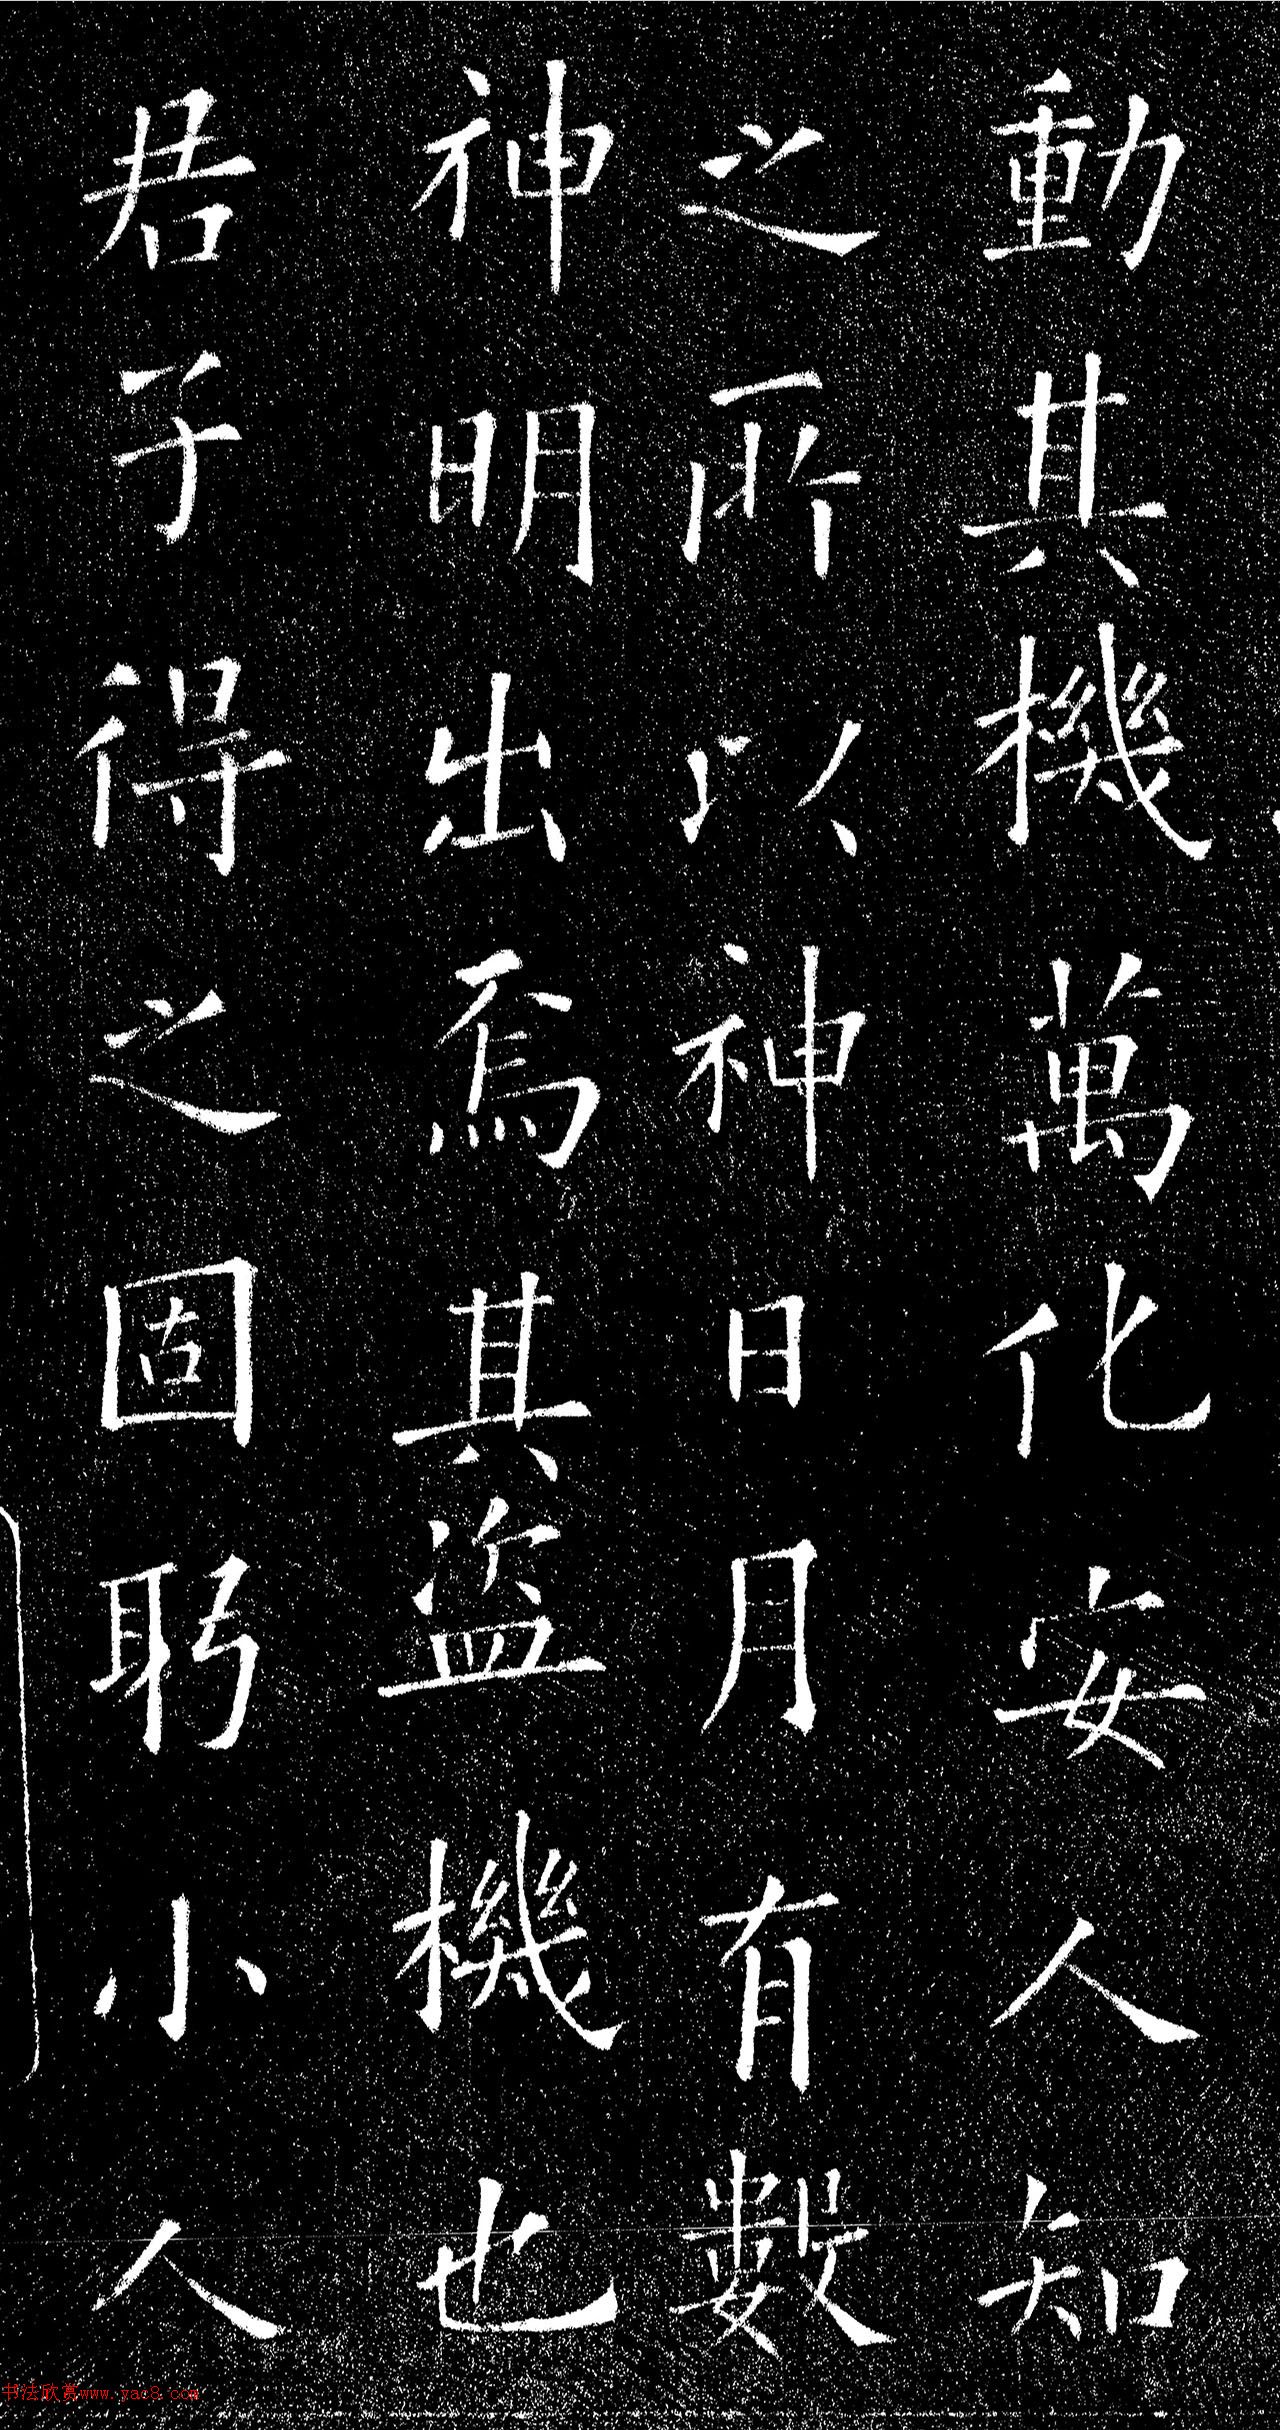 動其機萬化安人知
之所以神日月有數
神明出焉其盜機也
君子得之固躬小人
书法欣赏www.yac8.com